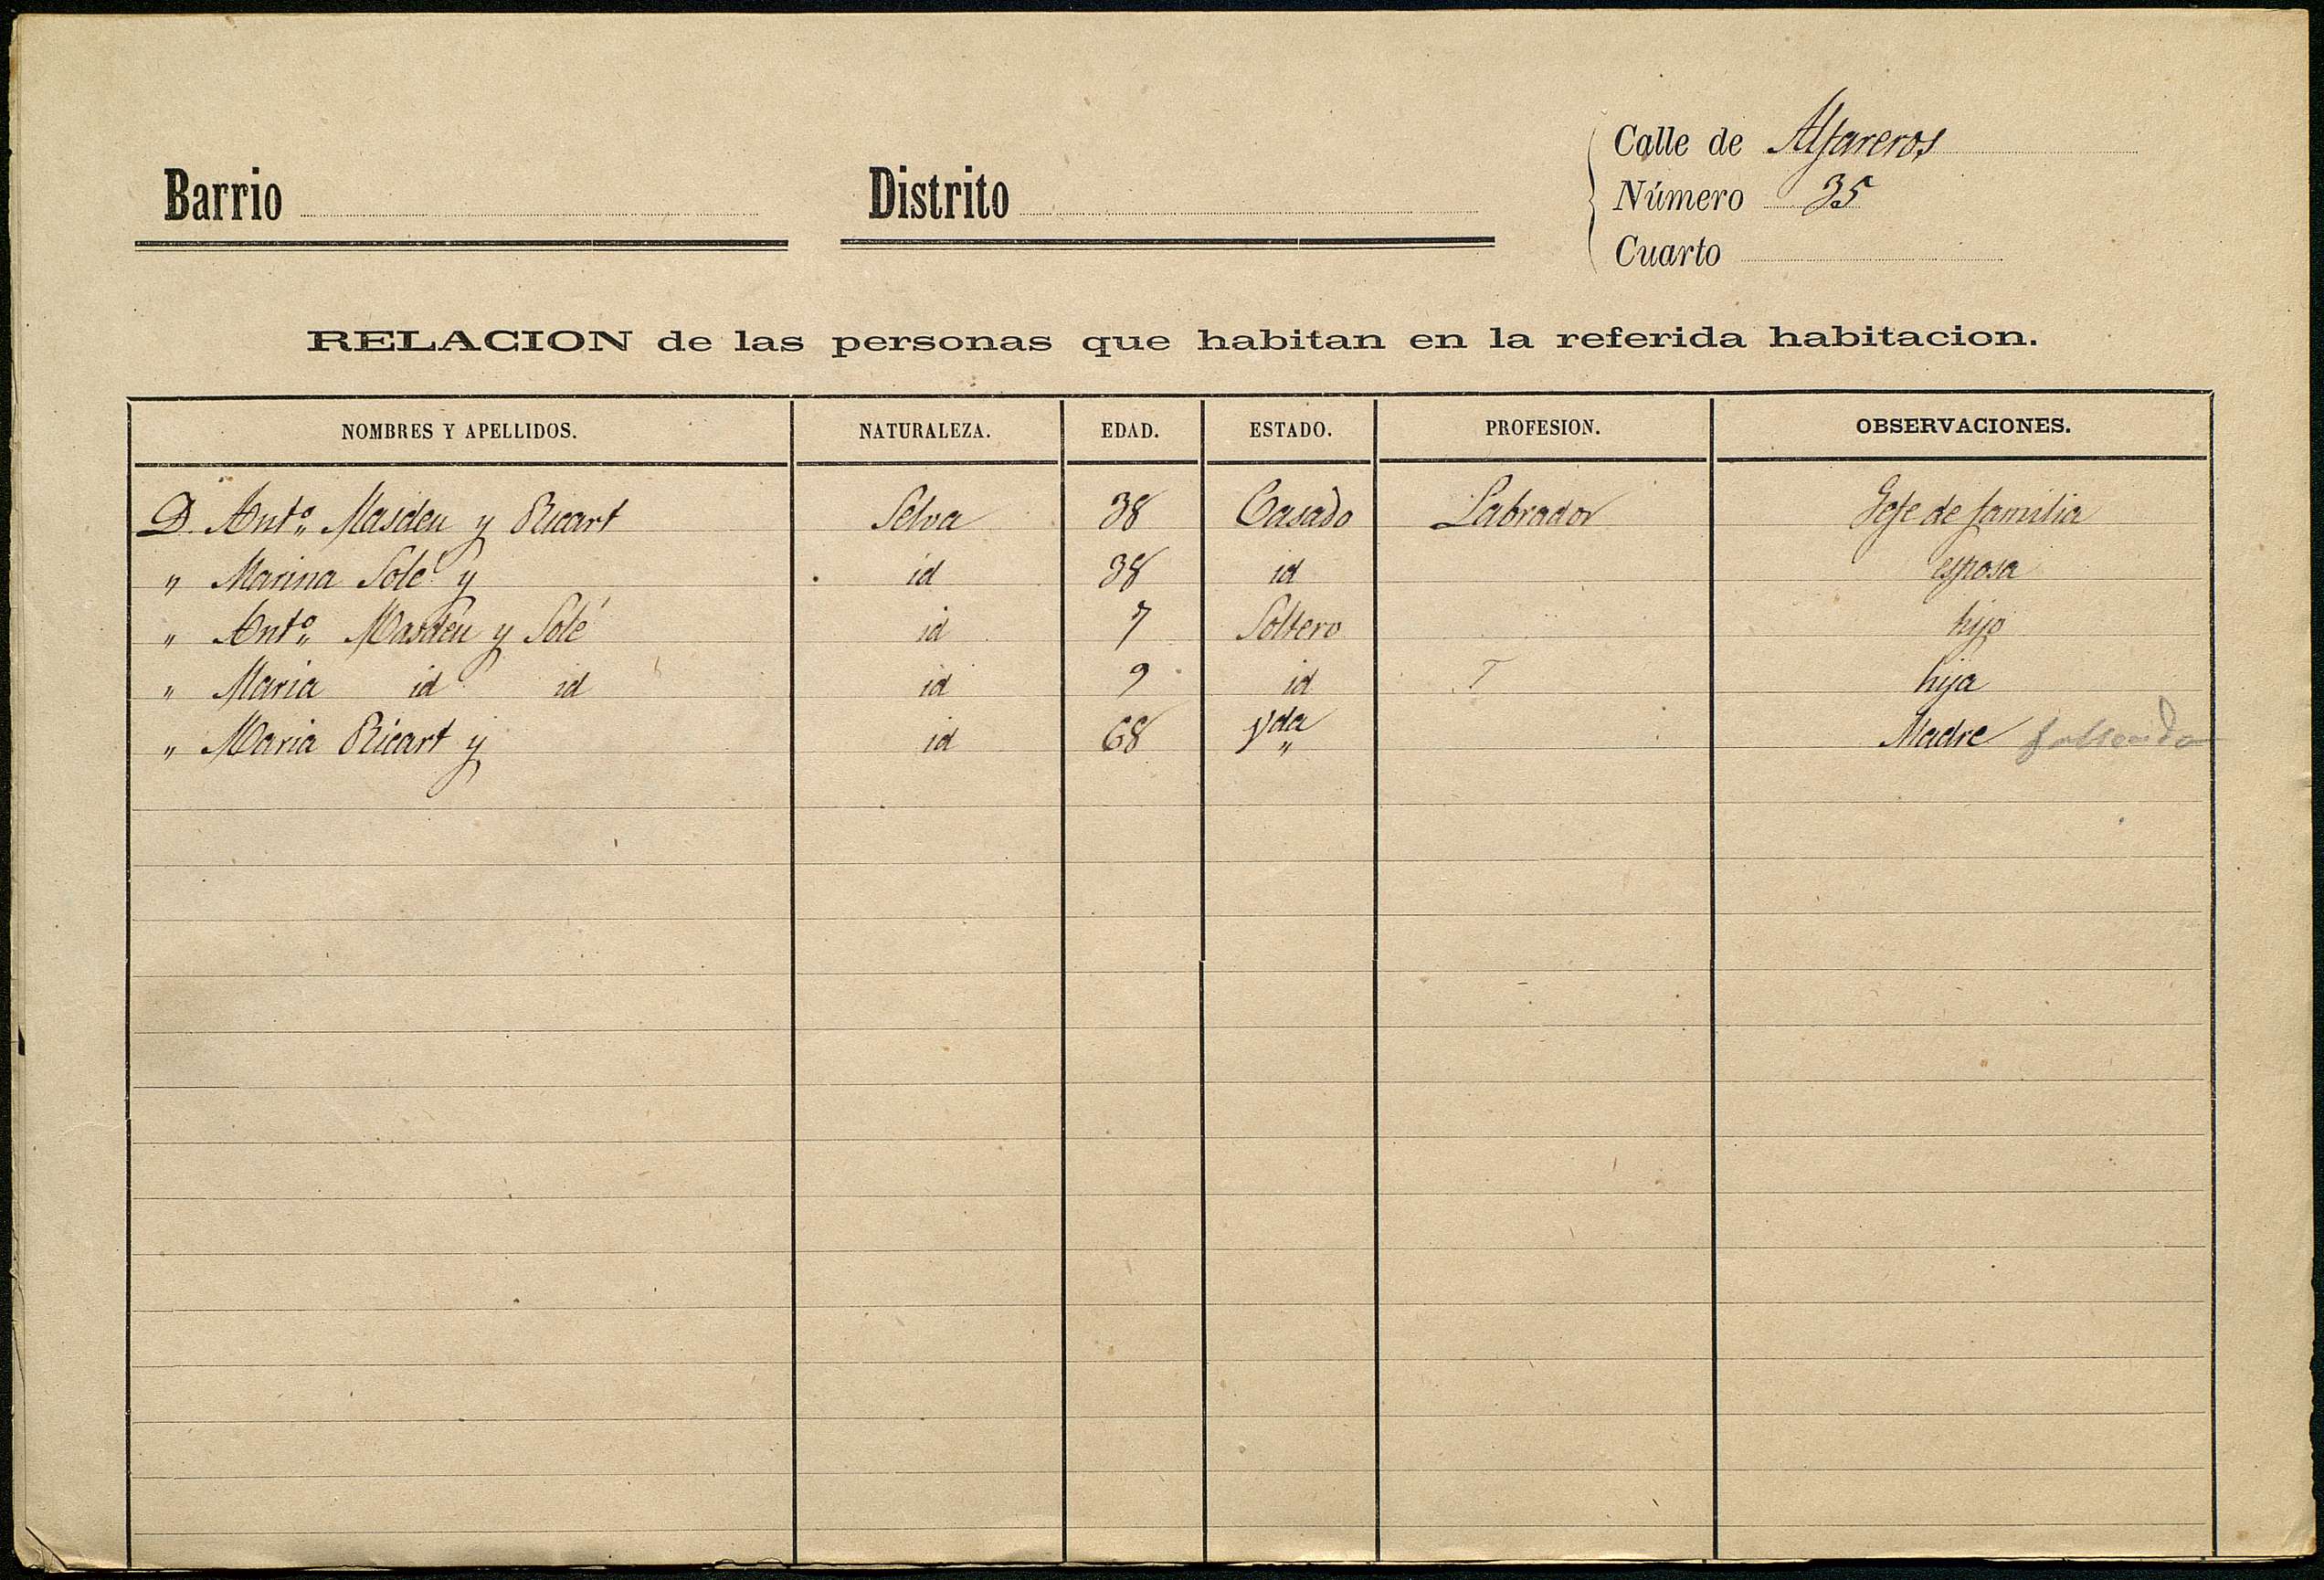 Barrio
Distrito
Calle de Alfareros
Número 35
Cuarto
RELACION de las personas que habitan en la referida habitacion.
NOMBRES Y APELLIDOS. NATURALEZA. EDAD. ESTADO. PROFESION. OBSERVACIONES.
D. Antº Masdeu y Ricart Selva 38 Casado Labrador Gefe de familia
" Marina Solé y id 38 id esposa
" Antº Masdeu y Solé id 7 Soltero hijo
" Maria id id id 9 id hija
" Maria Ricart y id 68 Vda Madre fallecida